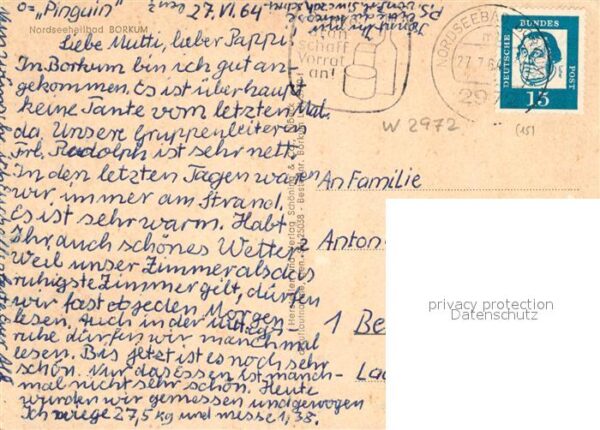 "Pinguin"
27.VI.64
Nordseeheilbad BORKUM
Liebe Mutti, lieber Pappi
In Borkum bin ich gut an-
gekommen. Es ist überhaupt
keine Tante vom letzten Mal
da. Unsere Gruppenleiterin
Frl. Radolph ist sehr nett.
In den letzten Tagen waren
wir immer am Strand.
Es ist sehr warm. Habt
Ihr auch schönes Wetter?
Weil unser Zimmer als das
ruhigste Zimmer gilt, dürfen
wir fast jeden Morgen
lesen. Auch in der Mittags-
ruhe dürfen wir manchmal
lesen. Bis jetzt ist es noch sehr
schön. Nur das Essen ist manch-
mal nicht sehr schön. Heute
wurden wir gemessen und gewogen
Ich wiege 27,5 kg und messe 1,38.
schaff
Vorrat
an!
NORDSEEBA
297
DEUTSCHE BUNDES POST
15
W 2972
(15)
An Familie
Anton
1 Be
La
privacy protection
Datenschutz